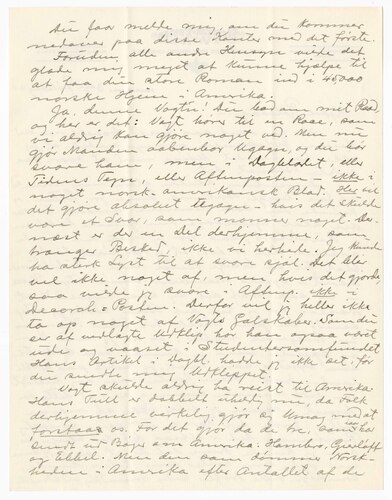 Du faar melde mig, om du kommer
nedover paa disse Kanter med det første.
Foruden alle andre Hensyn vilde det
glæde mig meget at kunne hjælpe til
at faa din store Roman ind i 45000
norske Hjem i Amerika.
Ja, denne Vogt! Du bad om mit Raad
og her er det: Vogt hører til en Race, som
vi aldrig kan gjøre noget ved. Men nu
gjør Manden aabenbar Ugagn, og du bør
svare ham men i Dagbladet, eller
Tidens Tegn, eller Aftenposten — ikke i
noget norsk-amerikansk Blad. Her vil
det gjøre absolut ingen — hvis det skulde
være et Svar, som monner noget. Der-
næst er der en Del derhjemme, som
trænger Besked, ikke vi herude. Jeg kunde
ha stærk Lyst til at svare sjøl. Det blev
vel ikke noget af, men hvis det gjorde,
saa vilde jeg svare i Aftenp. ikke i
Decorah-Posten. Derfor vil jeg heller ikke
ta op noget af Vogts Galskaber. Som du
ser af vedlagte Udklip har han ogsaa været
ude og naaset i Studentersamfundet
Hans Artikel i Dagbl. hadde jeg ikke set, før
du sendte mig Udklippet.
Vogt skulde aldrig ha reist til Amerika
Hans Tull er dobbelt uheldig nu, da Folk
derhjemme virkelig gjør sig Umag med at
forstaa os. For det gjør da de tre, som har
sendt ud Bøger om Amerika: Hambro, Gierløff
og Ebbell. Men den som dømmer Norsk-
heden i Amerika efter Antallet af de